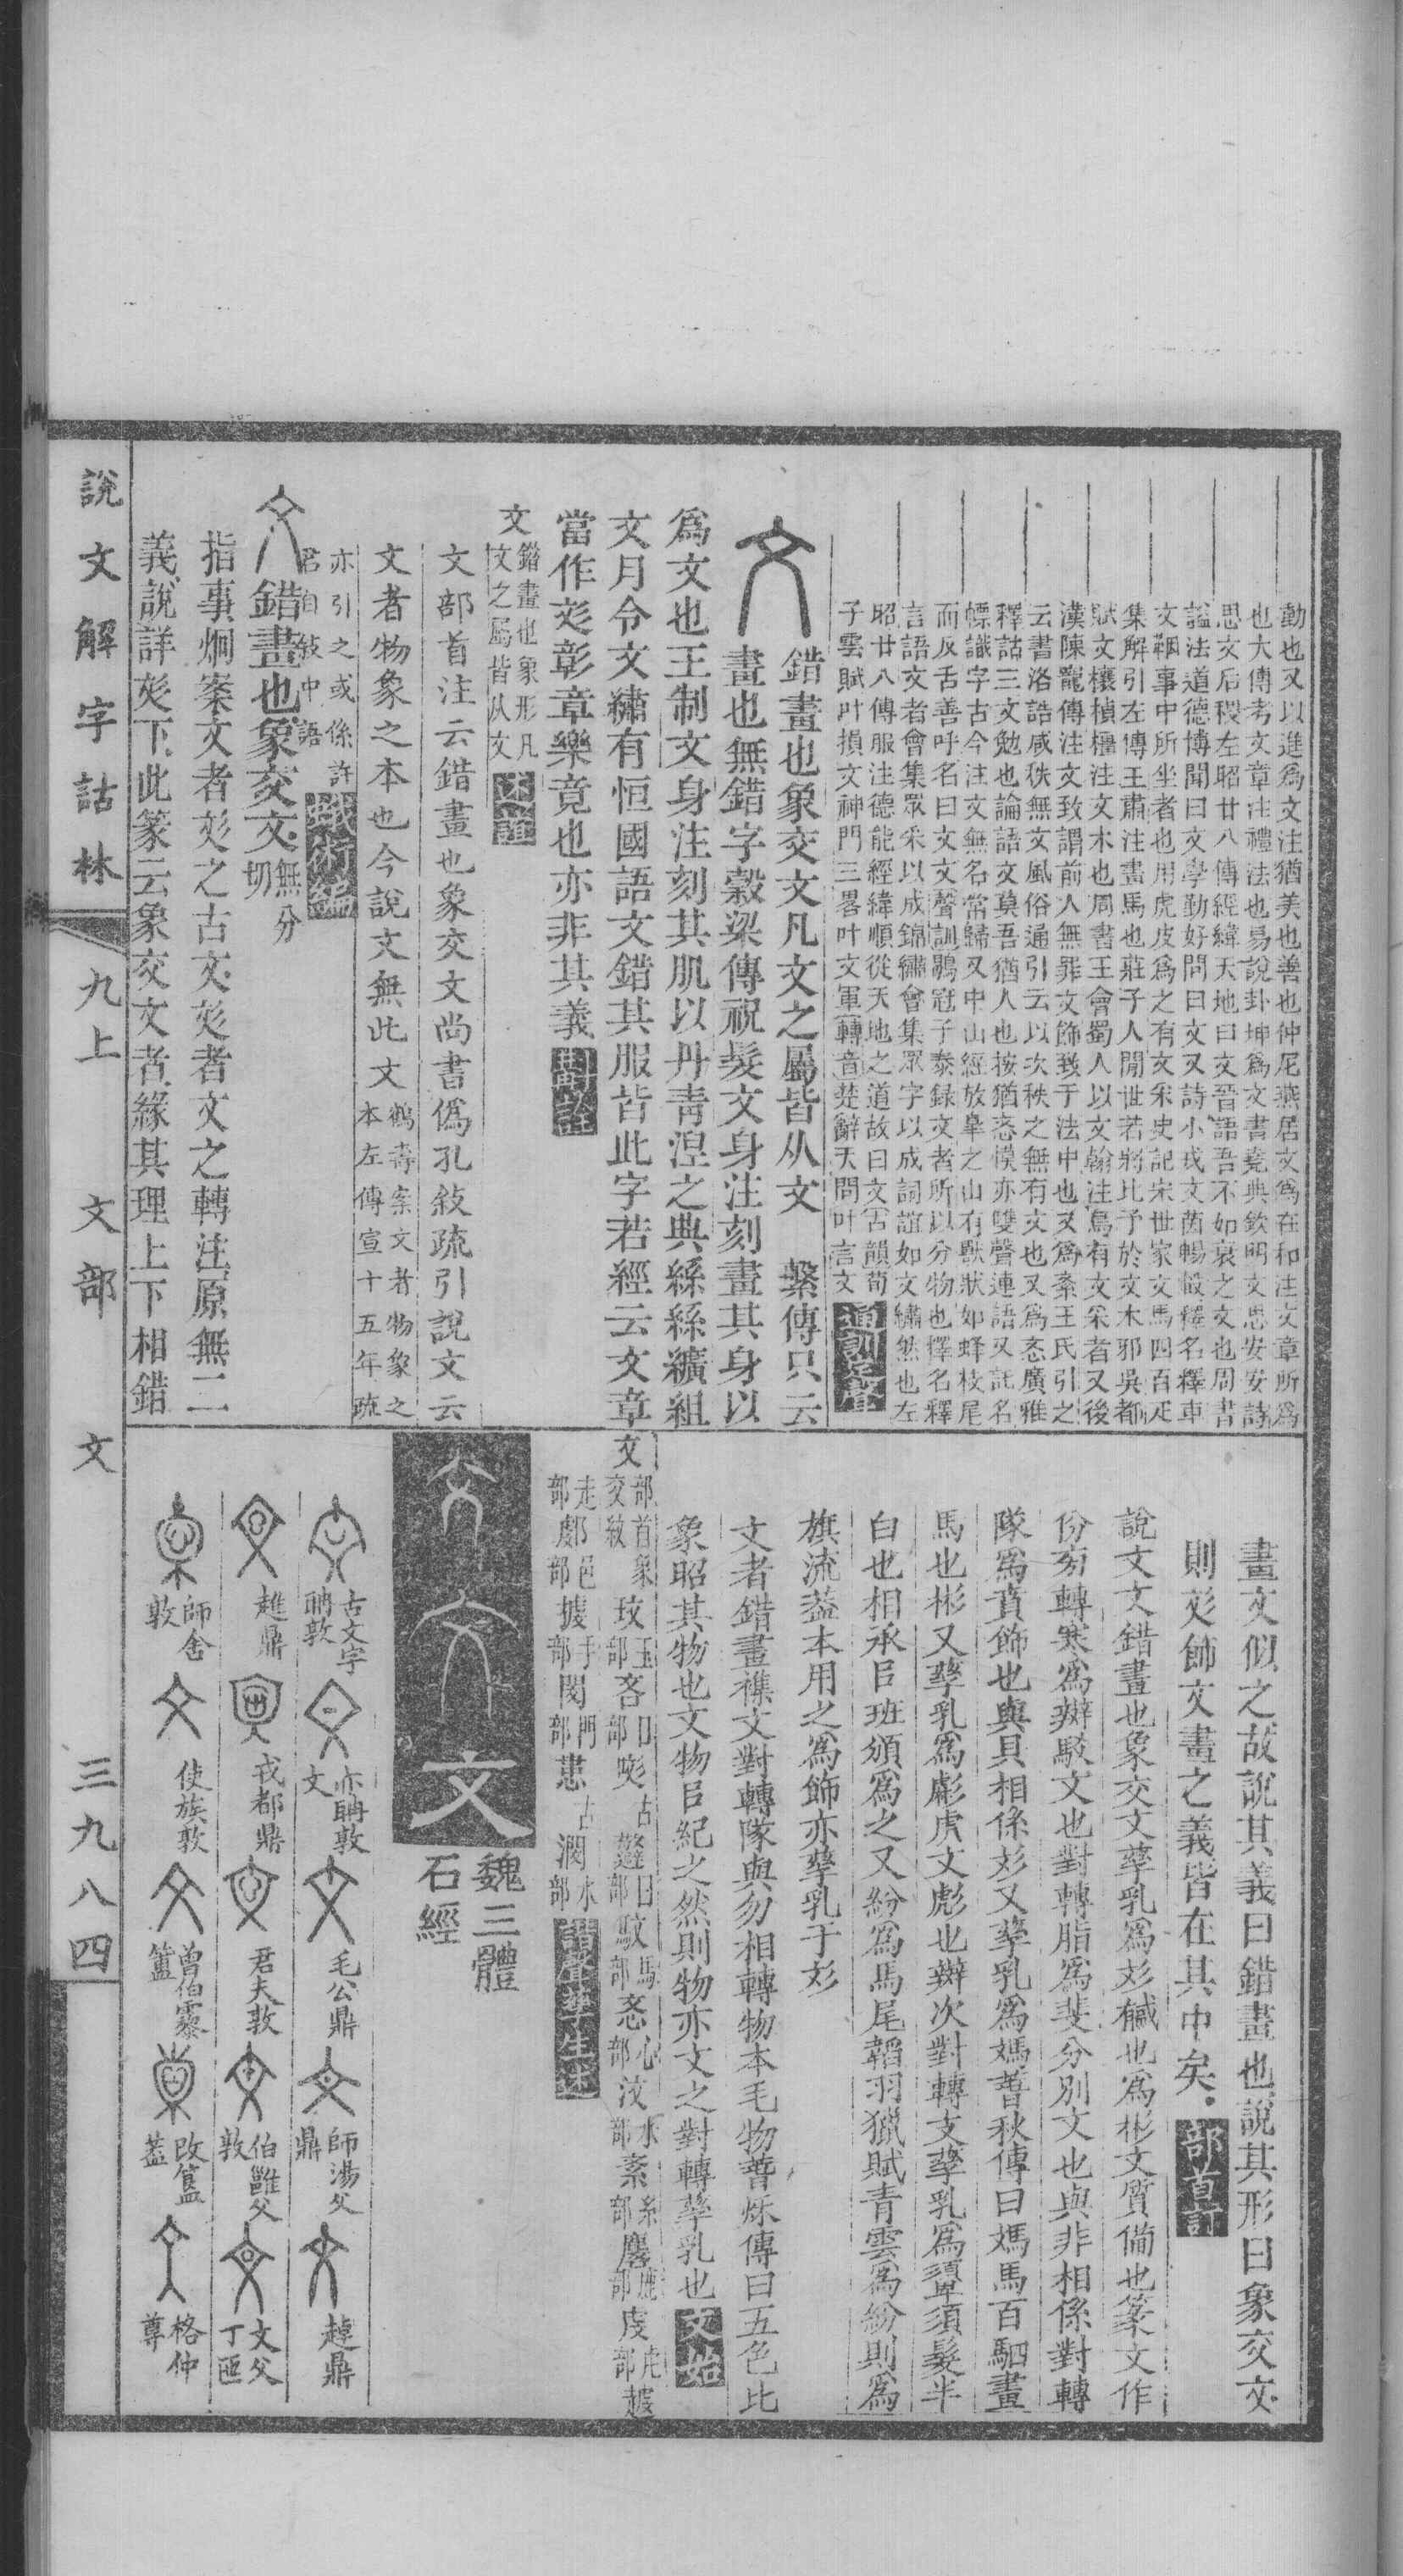 動也又以進爲文注猶美也善也仲尼燕居文爲在和注文章所爲
也大傳考文章注禮法也易說卦坤爲文書堯典欽明文思安安詩
思文后稷左昭廿八傳經緯天地曰文晉語吾不如衰之文也周書
諡法道德博聞曰文學勤好問曰文又詩小戎文茵暢轂釋名釋車
文鞇車中所坐者也用虎皮爲之有文采史記宋世家文馬四百疋
集解引左傳王肅注畫馬也莊子人閒世若將比予於文木邪吳都
賦文欀楨橿注文木也周書王會蜀人以文翰注鳥有文采者又後
漢陳寵傳注文致謂前人無罪文飾致于法中也又爲紊王氏引之
云書洛誥咸秩無文風俗通引云以次秩之無有文也又爲忞廣雅
釋詁三文勉也論語文莫吾猶人也按猶忞慔亦雙聲連語又託名
幖識字古今注文無名當歸又中山經放皋之山有獸狀如蜂枝尾
而反舌善呼名曰文文聲訓鶡冠子泰録文者所以分物也釋名釋
言語文者會集眾采以成錦繡會集眾字以成詞誼如文繡然也左
昭廿八傳服注德能經緯順從天地之道故曰文古韻荀
子雲賦叶損文神門三畧叶文軍轉音楚辭天問叶言文 通訓定聲
錯畫也象交文凡文之屬皆从文 繫傳只云
畫也無錯字穀梁傳祝髮文身注刻畫其身以
爲文也王制文身注刻其肌以丹靑涅之典絲絲纊組
文月令文繡有恒國語文錯其服皆此字若經云文章
當作彣彰章樂竟也亦非其義 斠詮
文 錯畫也象形凡
文之屬皆从文 述誼
文部首注云錯畫也象交文尚書僞孔敍疏引說文云
文者物象之本也今說文無此文 鶴壽案文者物象之
本左傳宣十五年疏
亦引之或係許
君自敍中語 蛾術編
錯畫也象交文 無分
切
指事烱案文者彣之古文彣者文之轉注原無二
義說詳彣下此篆云象交文者緣其理上下相錯
畫文似之故說其義曰錯畫也說其形曰象交文
則彣飾文畫之義皆在其中矣 部首訂
說文文錯畫也象交文孳乳爲彣䤋也爲彬文質備也篆文作
份旁轉寒爲辬駁文也對轉脂爲斐分別文也與非相係對轉
隊爲賁飾也與貝相係彣又孳乳爲媽萅秋傳曰媽馬百駟畫
馬也彬又孳乳爲彪虎文彪也辬次對轉支孳乳爲須髮半
白也相承㠯班頒爲之又紛爲馬尾韜羽獵賦青雲爲紛則爲
旗流蓋本用之爲飾亦孳乳于彣
文者錯畫襍文對轉隊與勿相轉物本毛物萅秌傳曰五色比
象昭其物也文物㠯紀之然則物亦文之對轉孳乳也 文始
文 部首象
交紋 玟 玉
部 吝 口
部 古 日
部 馼 馬
部 忞 心
部 汶 水
部 紊 糸
部 麐 鹿
部 虔 虎
部
走
部 邑
部 手
部 閔 門
部 古 水
部 諧聲孳生述
文
魏三體
石經
古文字
䎽敦 亦䎽敦
文 毛公鼎 師湯父
鼎 趠鼎
趩鼎 戎都鼎 君夫敦 伯雝父
敦 文父
丁匜
師舍
敦 使族敦 曾伯霥
簠 改簋
蓋 格仲
尊
說文解字詁林 九上 文部 文 三九八四